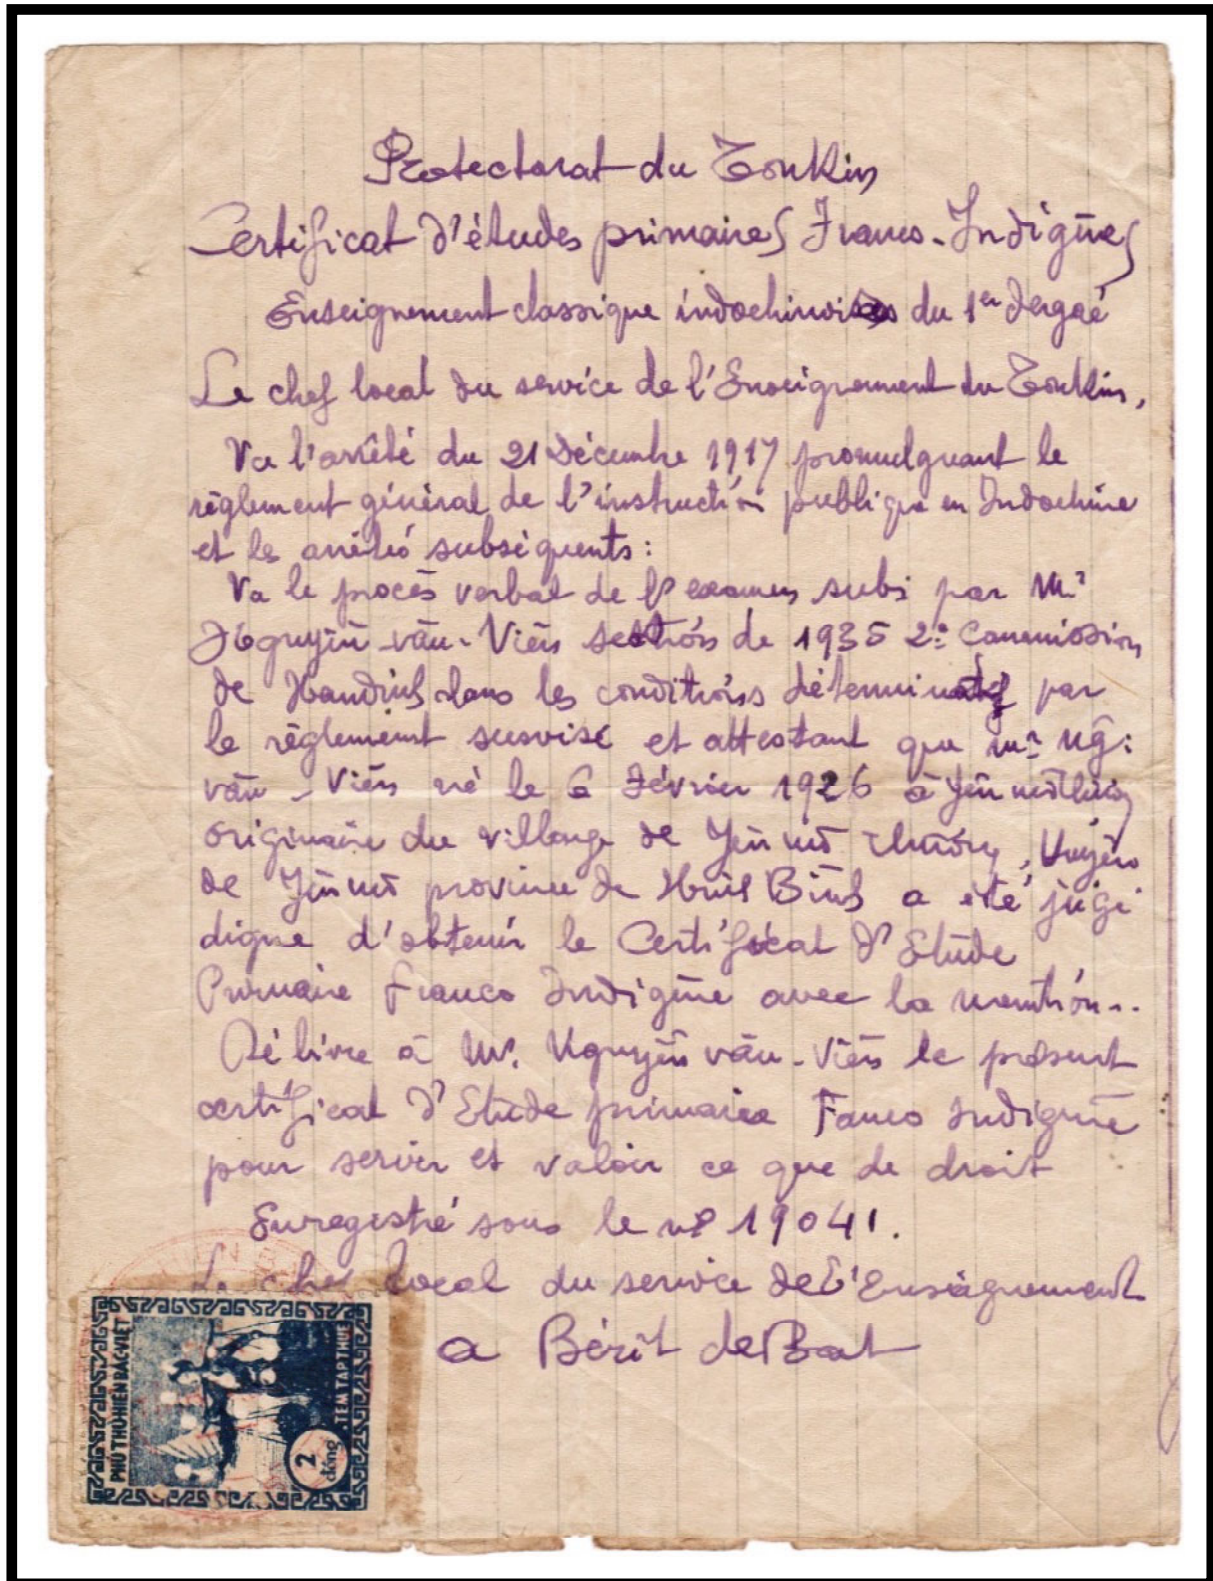 Protectorat du Tonkin
Certificat d'études primaires Franco-Indigènes
Enseignement classique indochinois du 1er dergaé
Le chef local du service de l'Enseignement du Tonkin,
Vu l'arrêté du 21 Décembre 1917 promulguant le
règlement général de l'instruction publique en Indochine
et les arrêtés subséquents :
Vu le procès verbal de l'examen subi par Mr
Nguyễn-văn-Viên de 1935 2e Commission
de dans les conditions déterminées par
le règlement susvisé et attestant que Mr Ng:
văn-Viên né le 6 Février 1926 à
originaire du village de Yên mô thường, Huyện
de Yên mô province de Ninh Binh a été jugé
digne d'obtenir le Certificat d'Etude
Primaire Franco Indigène avec la mention..
Délivré à Mr. Nguyễn văn-Viên le présent
certificat d'Etude primaire Fanco Indigène
pour servir et valoir ce que de droit
Enregistré sous le no 19041.
Le chef local du service de l'Enseignement
a
PHỦ THỦ HIẾN BẮC VIỆT
TEM TẠP THUẾ
2
đồng